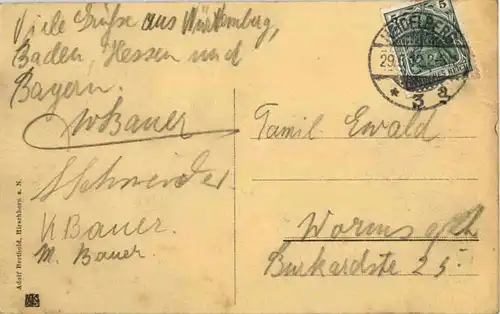 Viele Grüße aus Württemberg,
Baden, Hessen und
Bayern.
W Bauer
Schneider
K Bauer.
M. Bauer.
Adolf Berthold, Hirschhorn a. N.
HEIDELBERG
29.
* 3 a
5
Familie Ewald
Worms a/Rh
Burkardstr 25.